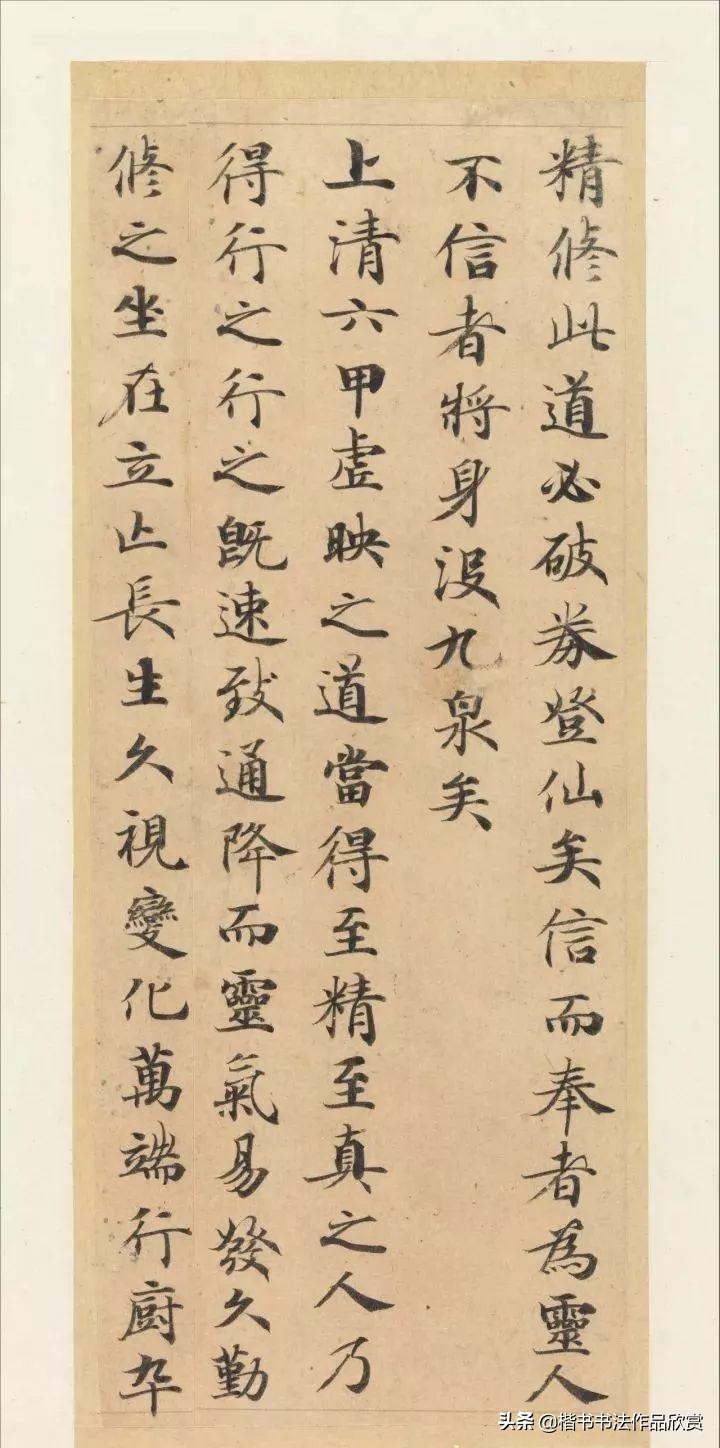 精修此道必破券登仙矣信而奉者為靈人
不信者將身没九泉矣
上清六甲虛映之道當得至精至真之人乃
得行之行之既速致通降而靈氣易發久勤
修之坐在立亡長生久視變化萬端行廚卒
头条@楷书书法作品欣赏